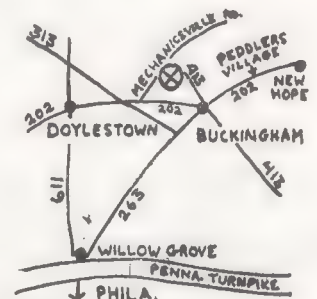 313
MECHANICSVILLE RD.
413
PEDDLERS
VILLAGE
202
NEW
HOPE
202
202
DOYLESTOWN
BUCKINGHAM
611
263
413
WILLOW GROVE
PENNA. TURNPIKE
PHILA.